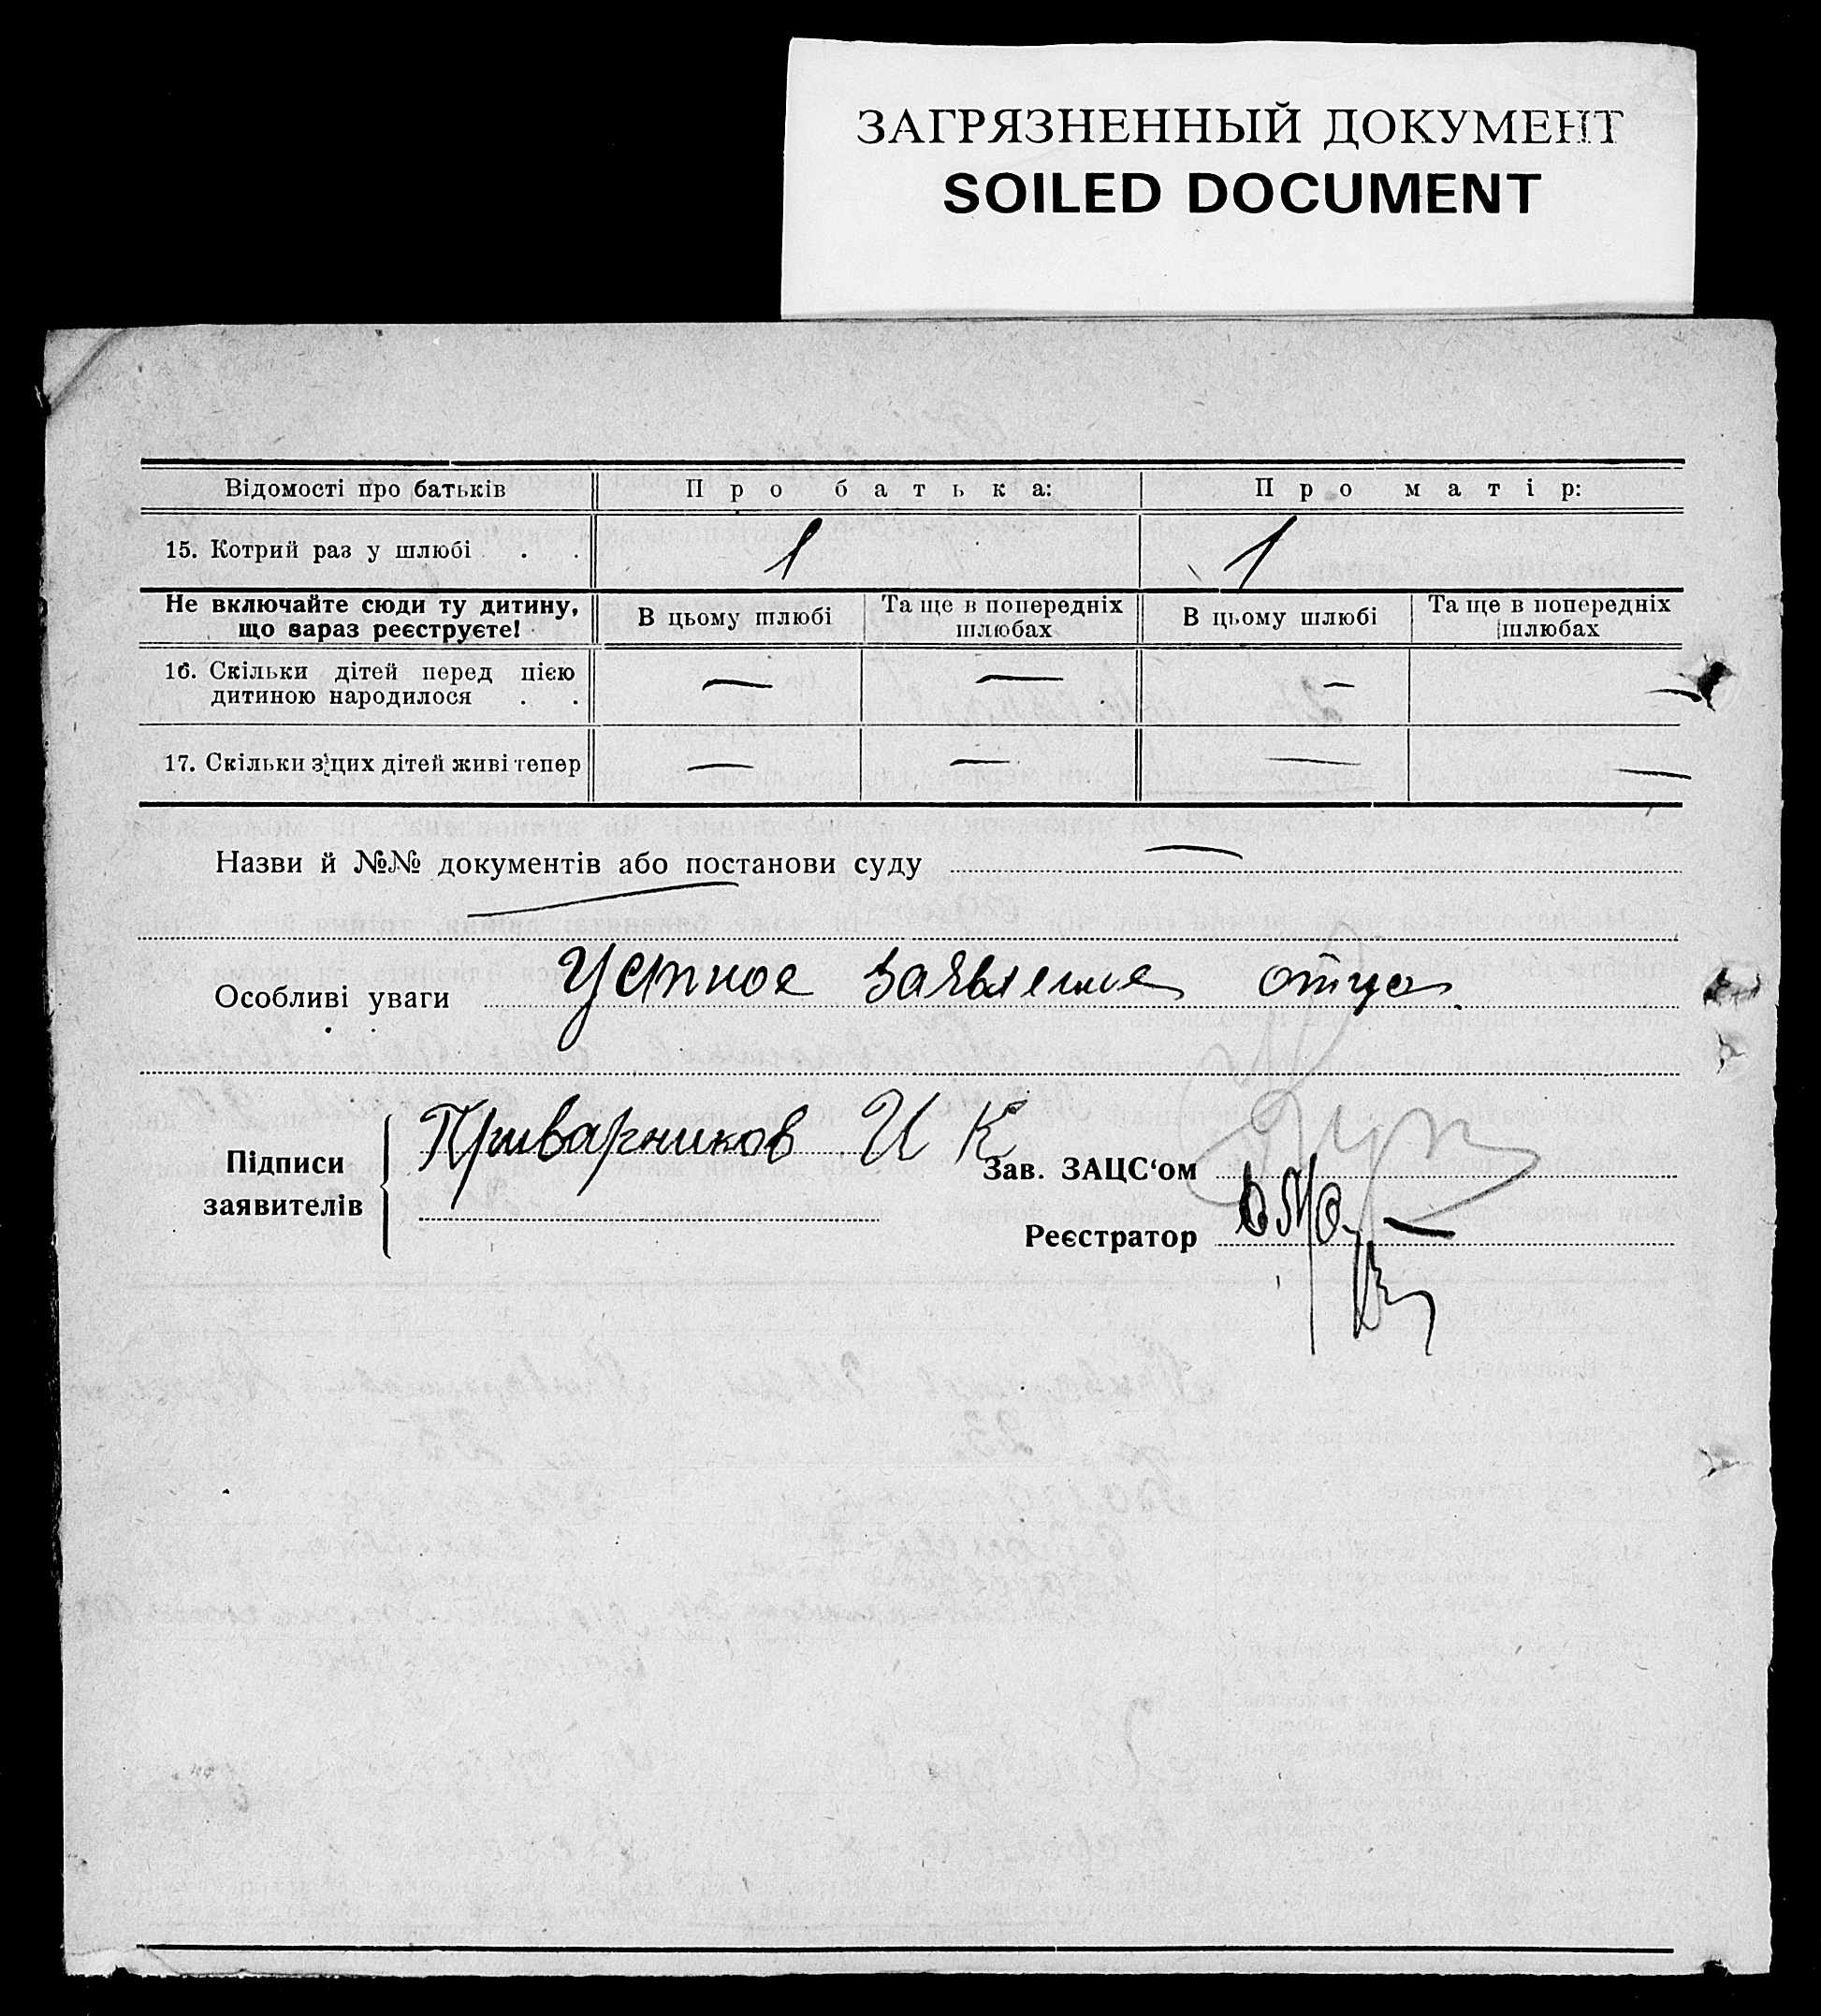 ЗАГРЯЗНЕННЫЙ ДОКУМЕНТ
SOILED DOCUMENT
Відомості про батьків Про батька: Про матір:
15. Котрий раз у шлюбі . . 1 1
Не включайте сюди ту дитину, що зараз реєструєте! В цьому шлюбі Та ще в попередніх шлюбах В цьому шлюбі Та ще в попередніх шлюбах
16. Скільки дітей перед цією — — — —
дитиною народилося . .
17. Скільки з цих дітей живі тепер — — — —
Назви й №№ документів або постанови суду —
—
Особливі уваги Устное заявление отца.
Підписи заявителів Приварников И К
Зав. ЗАЦС‘ом
Реєстратор